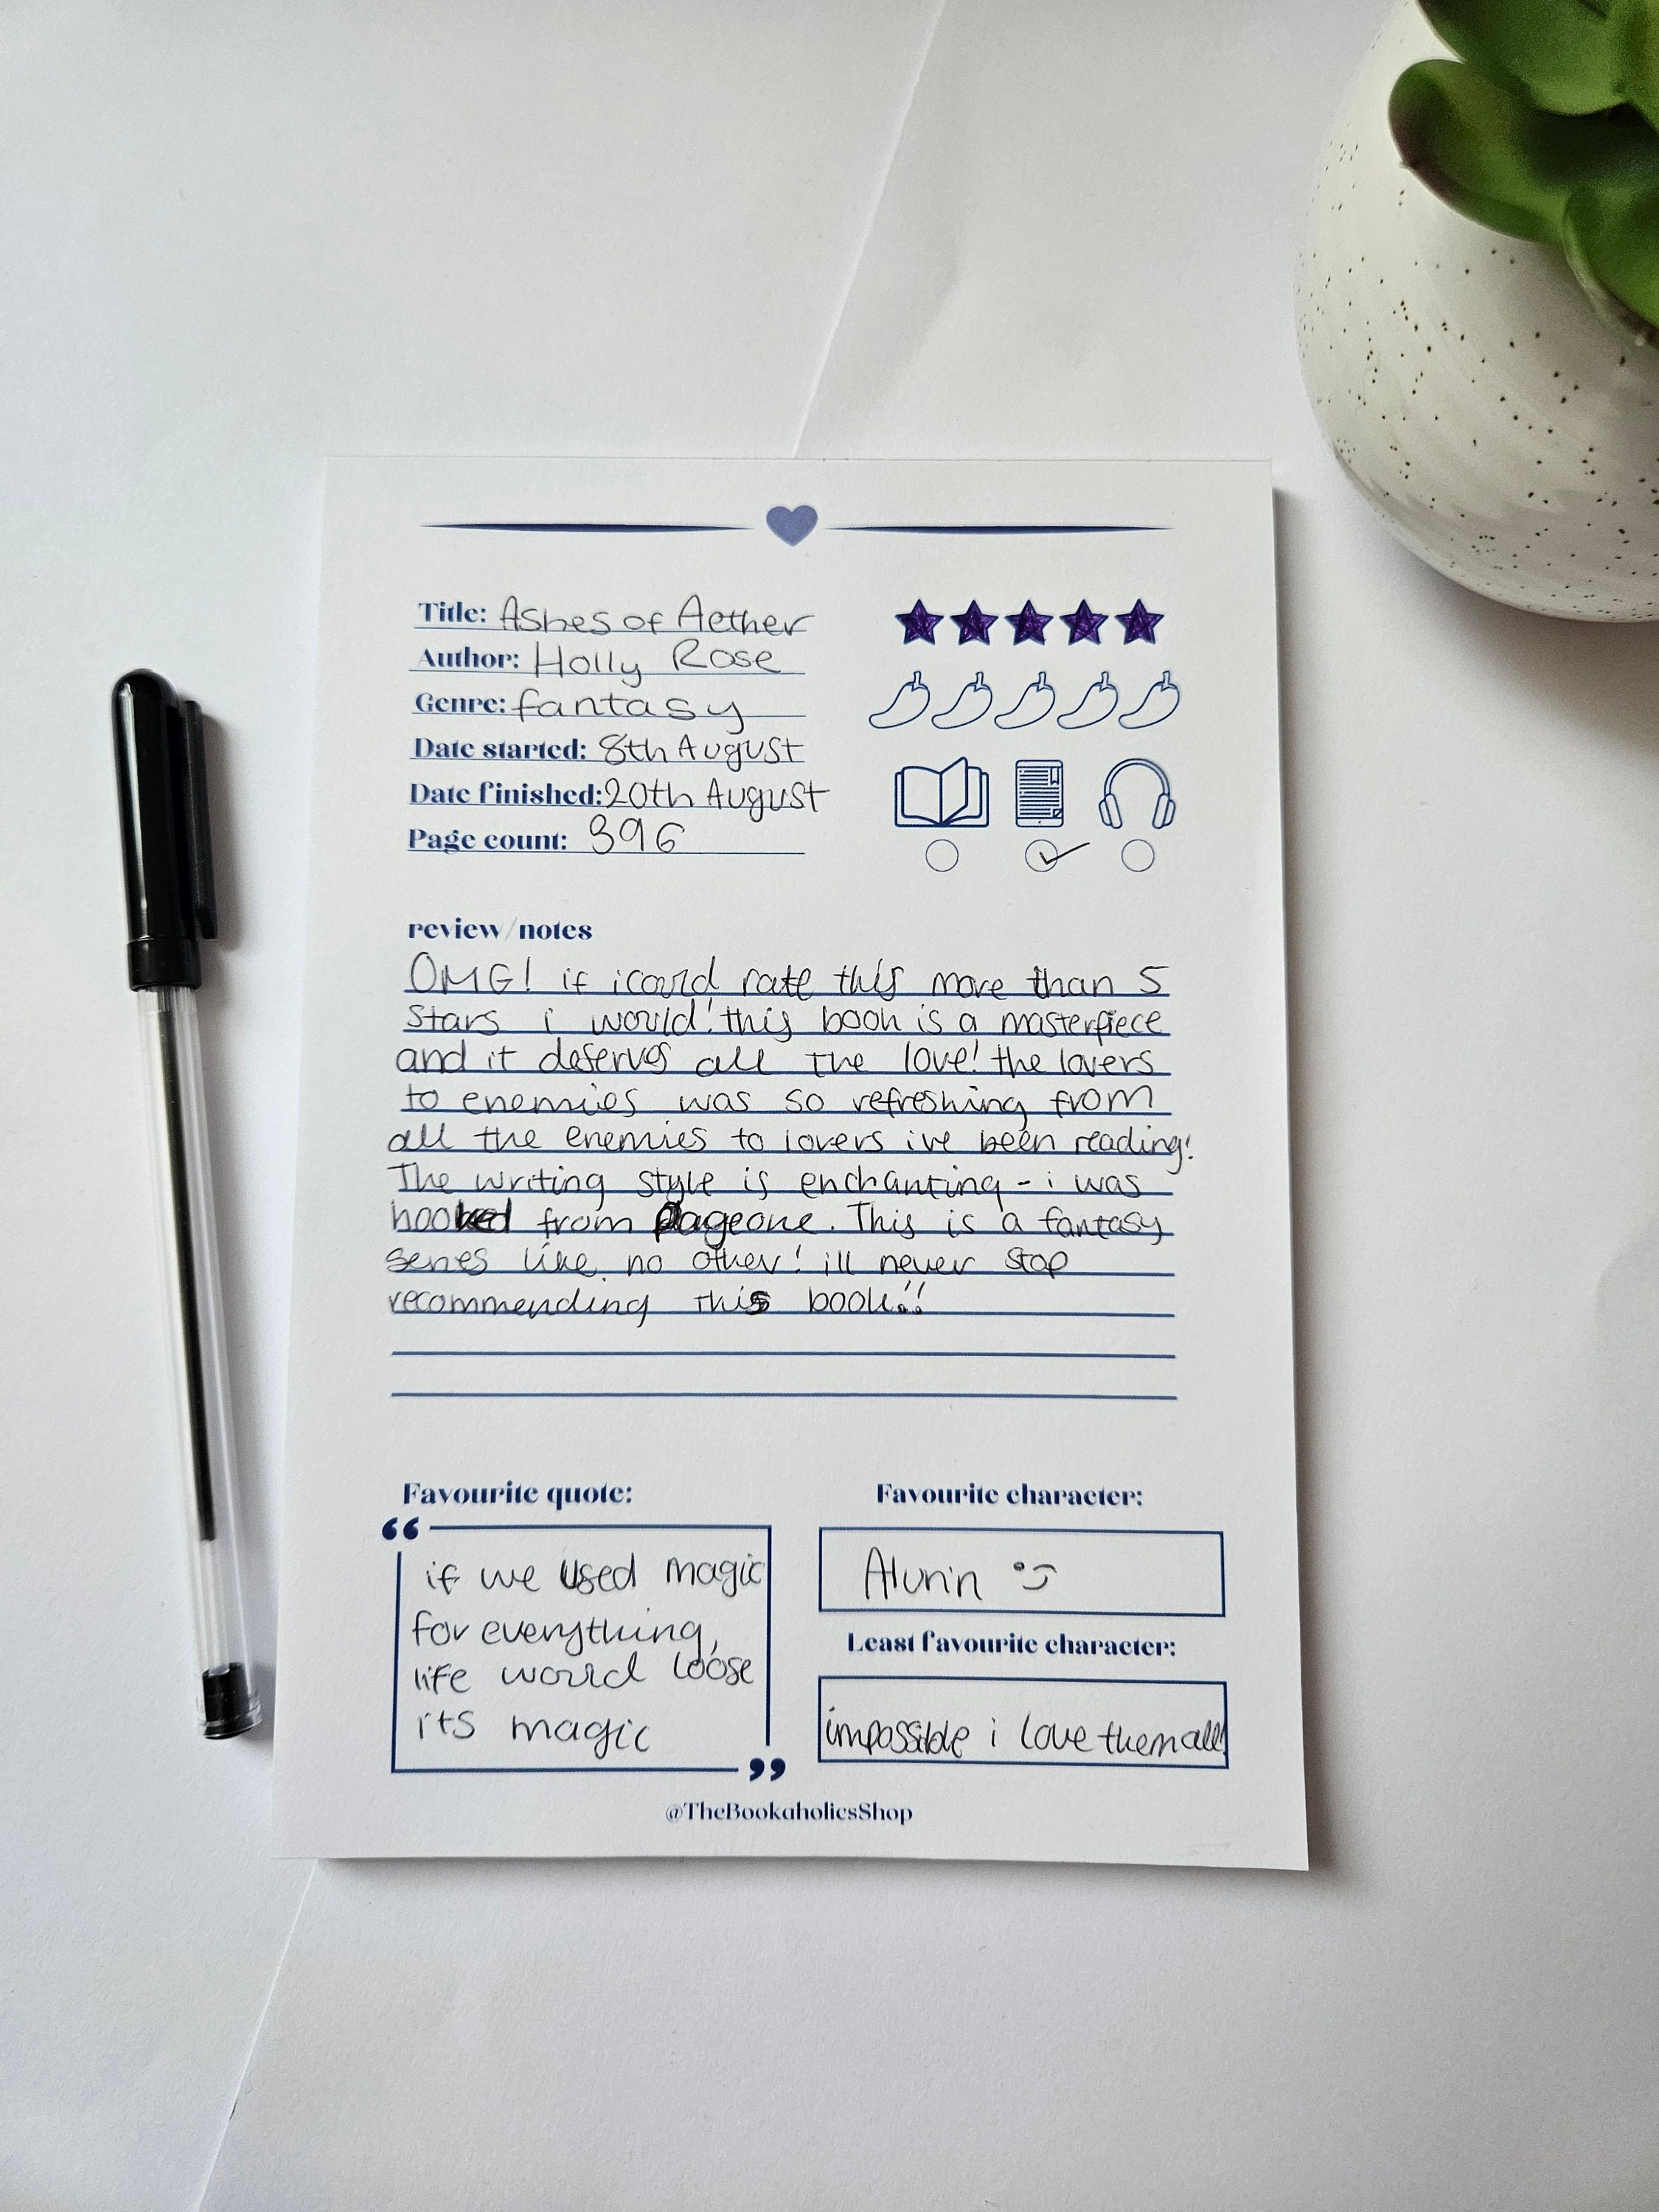 Title: Ashes of Aether
Author: Holly Rose
Genre: fantasy
Date started: 8th August
Date finished: 20th August
Page count: 396
review/notes
OMG! if i could rate this more than 5
stars i would! this book is a masterpiece
and it deserves all the love! the lovers
to enemies was so refreshing from
all the enemies to lovers ive been reading!
The writing style is enchanting - i was
hooked from page one. This is a fantasy
series like no other! ill never stop
recommending this book!!
Favourite quote:
“
if we used magic
for everything,
life would loose
its magic
”
Favourite character:
Alurin
Least favourite character:
impossible i love them all!
@TheBookaholicsShop